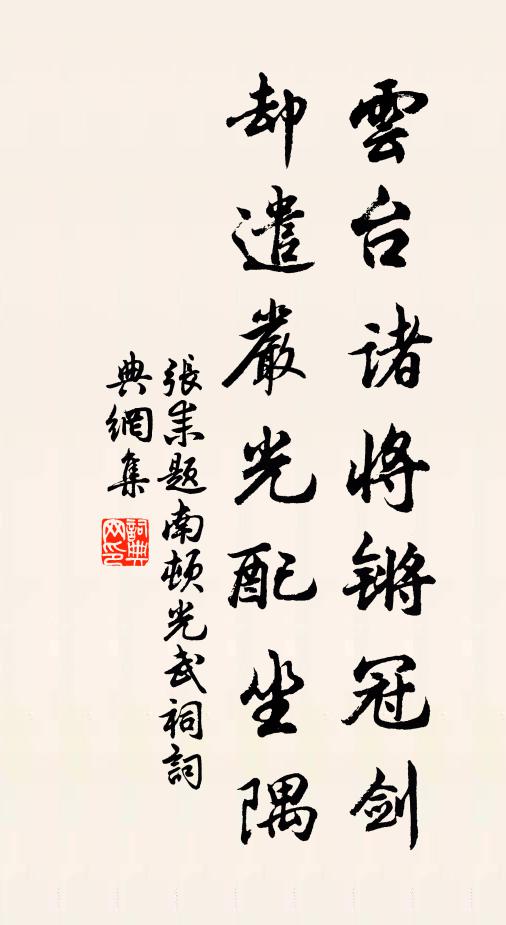 雲台诸將锵冠剑
却遣嚴光配坐隅
張耒題南頓光武祠詞
典網集
詞典
网印